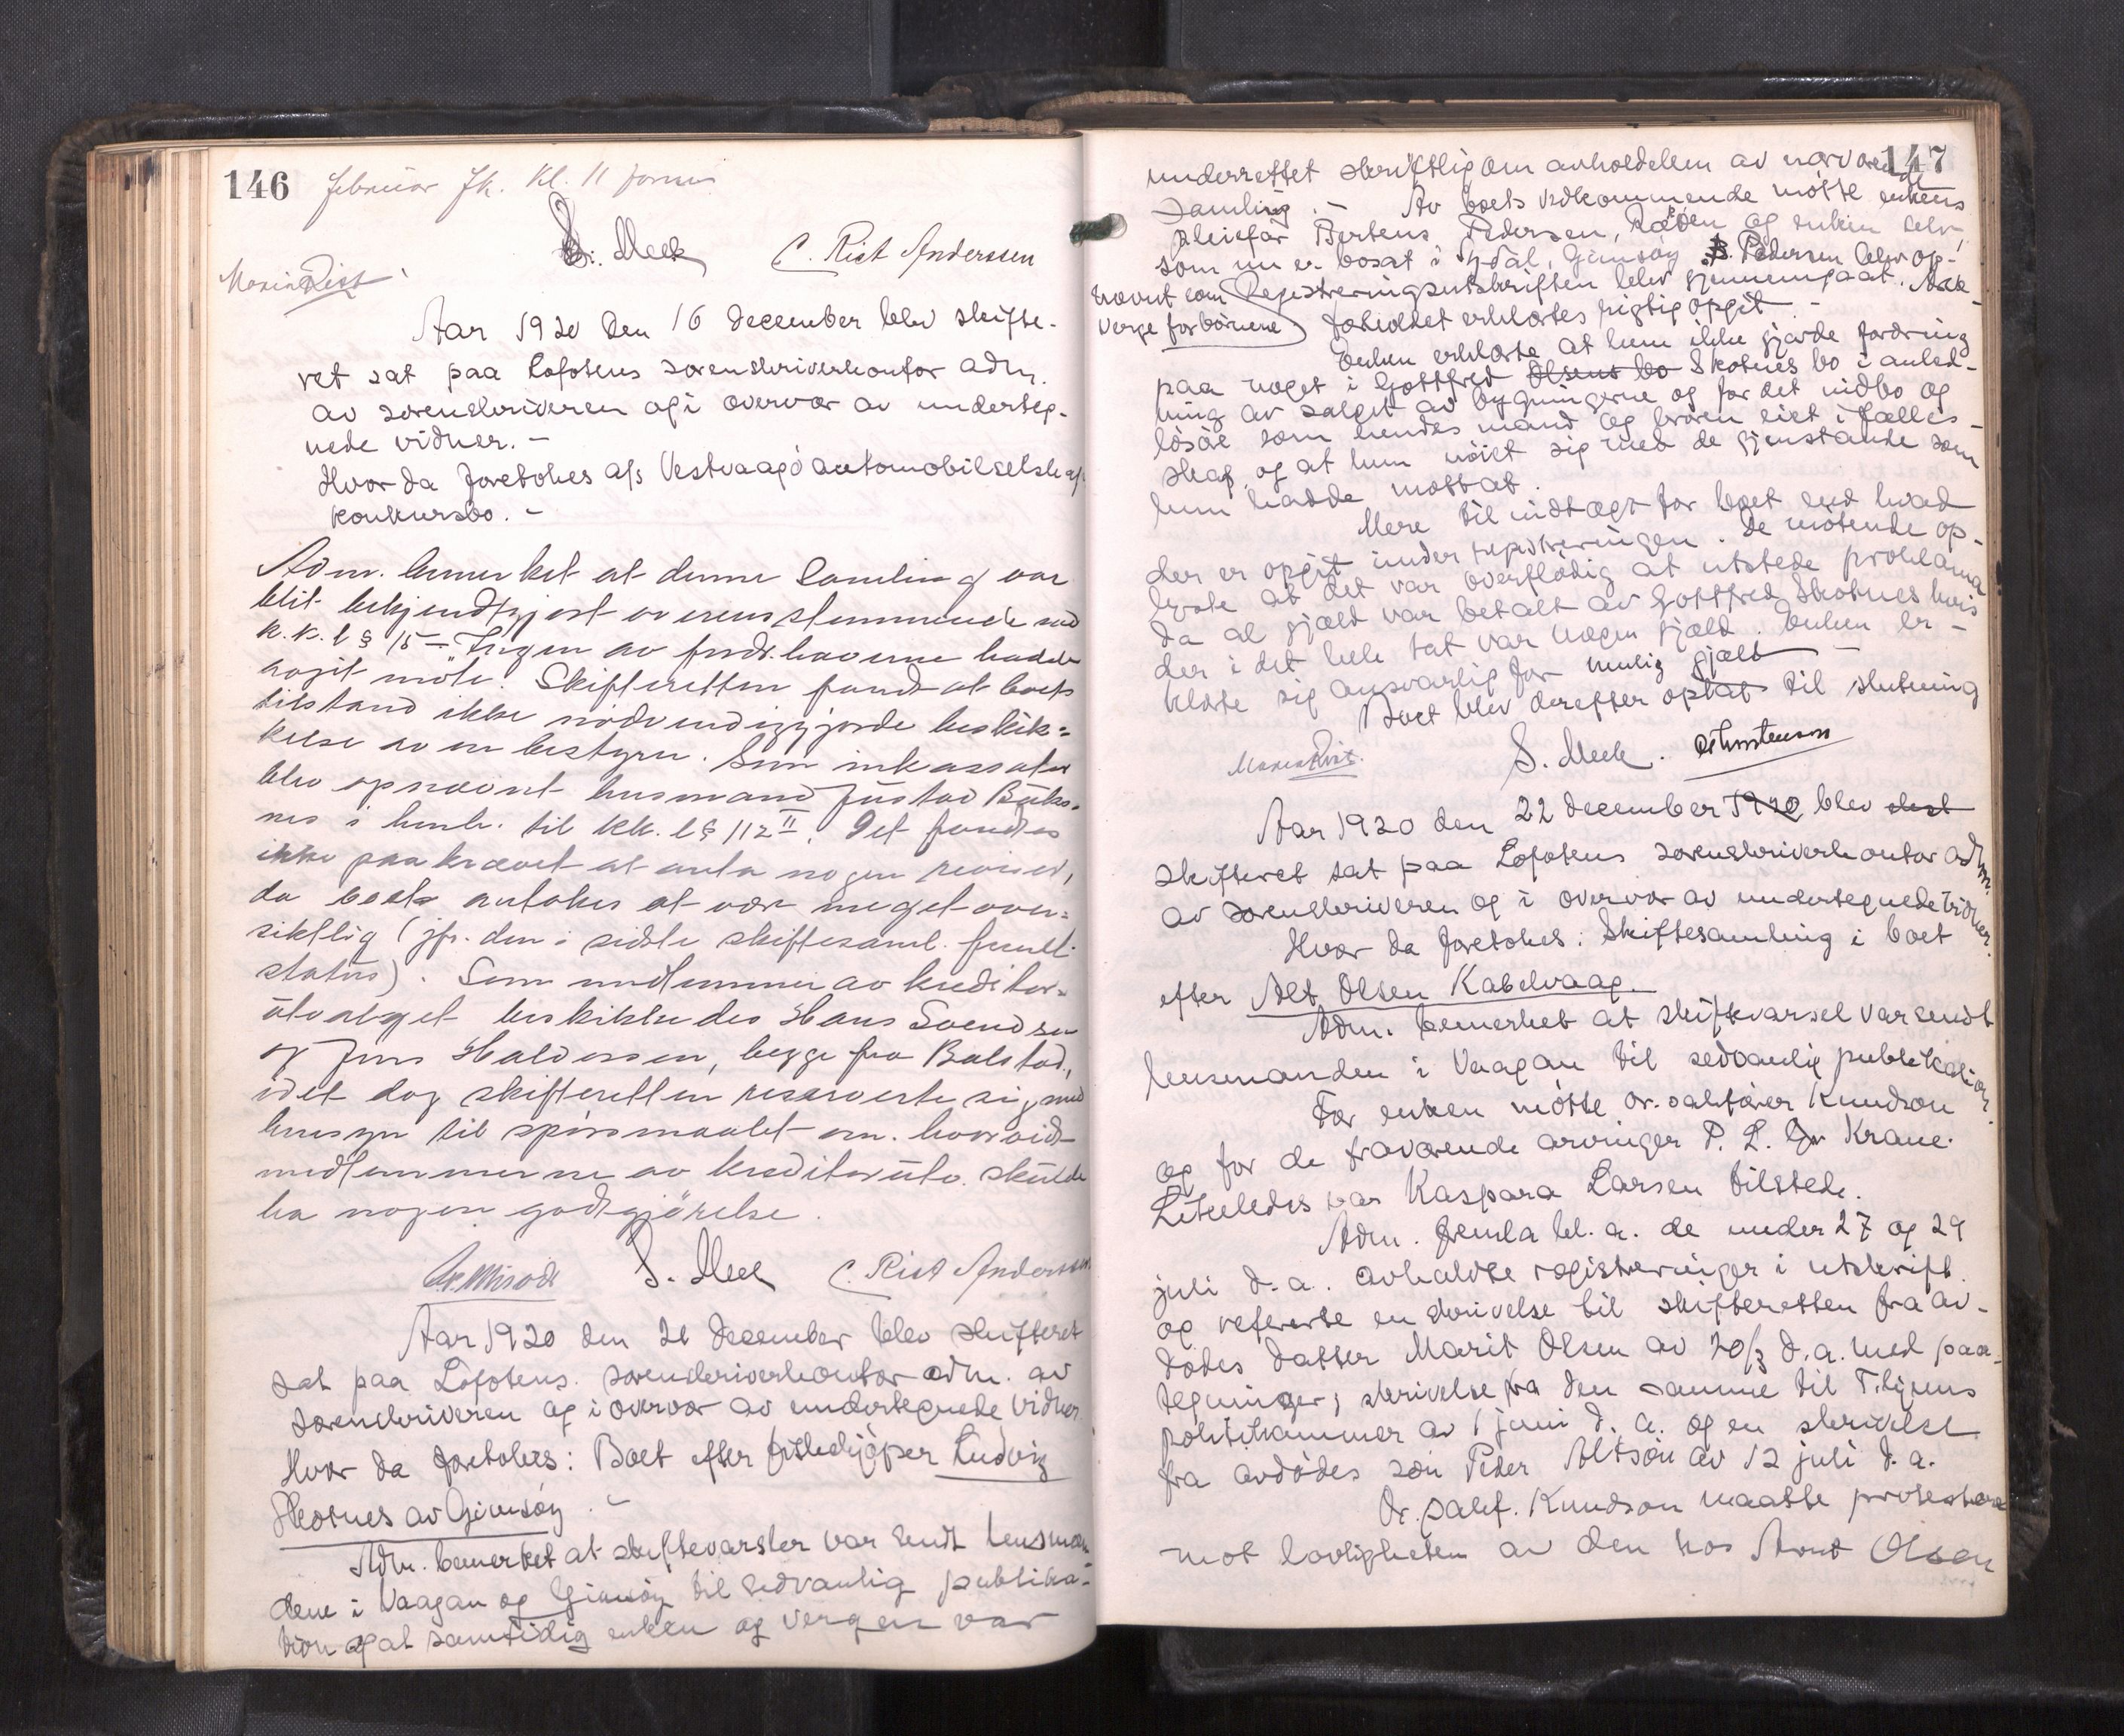 146 februar fk. kl. 11 form.
S. Meek C. Rist Anderssen
Maria Rist
Aar 1920 den 16 december blev skifte-
ret sat paa Lofotens sorenskriverkontor adm.
av sorenskriveren og i overvær av underteg-
nede vidner. –
Hvor da foretokes a/s Vestvaagö automobilselskaps
konkursbo. –
Adm. bemerket at denne Samling var
blit bekjendtgjort overensstemmende med
k.k. l § 15 – Ingen av fordr.haverne hadde
avgit möte. Skifteretten fandt at boets
tilstand ikke nödvendiggjorde beskik=
kelse av en bestyrer. Som inkassator
blev opnævnt husmand Gustav Buks-
nes i henh. til kk. l § 112 II. Det fandtes
ikke paakrævet at anta nogen revisor,
da boets antokes at vær meget over=
siktlig (jfr. den i sidste skiftesaml. freml.
status). Som medlemmer av kreditor=
utvalget beskikkedes Hans Svendsen
og Jens Haldorsen, begge fra Balstad,
idet dog skifteretten reserverte sig med
hensyn til spörsmaalet om. hvorvidt
medlemmerne av kreditorutv. skulde
ha nogen godtgjörelse.
S. Meek C. Rist Anderssen
Aar 1920 den 21 december blev skifteret
sat paa Lofotens. sorenskriverkontor adm. av
sorenskriveren og i overvær av undertegnede vidner
Hvor da foretokes: Boet efter fiskekjöper Ludvig
Skotnes av Gimsöy. –
Adm. bemerket at skiftevarsler var sendt lensmæn-
dene i Vaagan og Gimsöy til sedvanlig publika-
tion og at samtidig enken og vergen var
147
underrettet skriftlig om avholdelsen av nærværende
samling. – Av boets vedkommende mötte enkens
pleiefar Bertens Pedersen, og enken selv,
som nu er bosat i Sydal, Gimsöy B. Pedersen blev op-
nævnt som Registreringsutskriften blev gjennemgaat. Ark-
verge for börnene) forholdet erklærtes rigtig opgit –
Enken erklærte at hun ikke gjorde fordring
paa noget i Gottfred Olsens bo Skotnes bo i anled-
ning av salget av bygningerne og for det indbo og
lösöre som hendes mand og broren eiet i fælles-
skap, og at hun nöiet sig med de gjenstande som
hun hadde mottat.
Mere til indtægt for boet end hvad
der er opgit under registreringen. De mötende op-
lyste at det var overflödig at utstede proklama
da al gjæld var betalt av Gottfred Skotnes hvis
der i det hele tat var nogen gjæld. Enken er-
klærte sig ansvarlig for mulig gjæld –
Boet blev derefter optat til slutning
Maria Rist. S. Meek.
Aar 1920 den 22 december 1920 blev
skifteret sat paa Lofotens sorenskriverkontor adm.
av sorenskriveren og i overvær av undertegnede vidner.
Hvor da foretokes: Skiftesamling i boet
efter Alt Olsen Kabelvaag.
Adm. bemerket at skiftevarsel var sendt
lensmanden i Vaagan til sedvanlig publikation.
For enken mötte or. sakförer Knudson
og for de fraværende arvinger P. L. Krane.
Likeledes var Kaspara Larsen tilstede.
Adm. fremla bl. a. de under 27 og 29
juli d. a. avholdte registreringer i utskrift
og refererte en skrivelse til skifteretten fra av-
dödes datter Marit Olsen av 20/3 d. a. med paa-
tegninger; skrivelse fra den samme til T.hjems
politikammer av 1 juni d. a. og en skrivelse
fra avdödes sön Peder Altsön av 12 juli d. a.
Or. sakf. Knudson maatte protestere
mot lovligheten av den hos Arnt Olsen